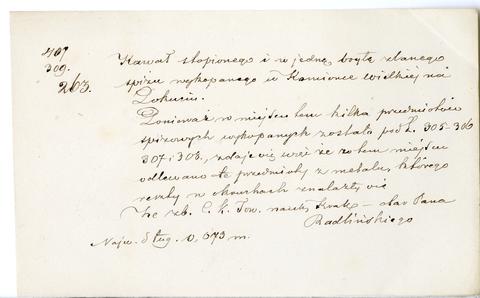 407
309.
263.
Kawał stopionego i w jedną bryłę zlanego
spiżu wykopanego w Kamionce wielkiej na
Pokuciu.
Ponieważ w miejscu tem kilka przedmiotów
spiżowych wykopanych zostało pod L. 305-306
307 i 308, zdaje się więc że w tem miejscu
odlewano te przedmioty z metalu, którego
resztki w okruchach znalazły się
Ze zb. C. k. Tow. nauk. Krak. — dar Pana
Radlińskiego
Najw. dług. 0,073 m.